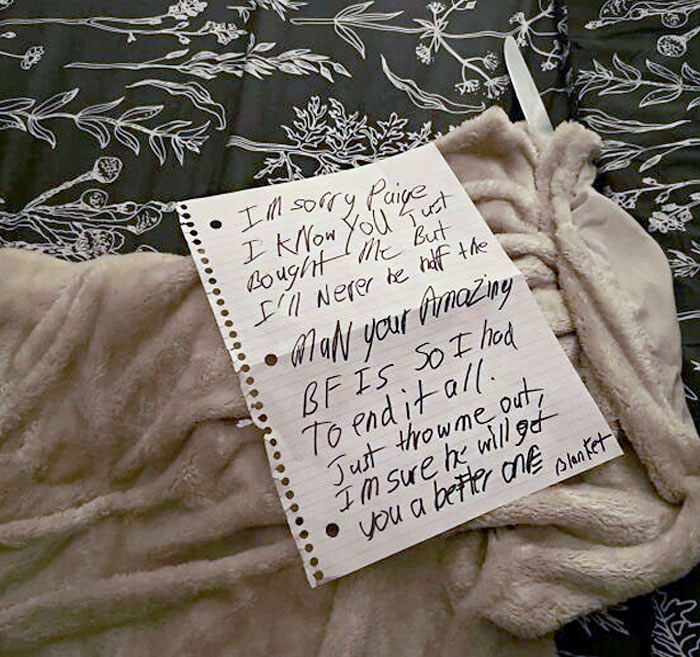 I'm sorry Paige
I KNow YOU Just
Bought Me But
I'll Never be half the
MaN your Amazing
BF IS So I had
To end it all.
Just throw me out,
I'm sure he will get
you a better one Blanket